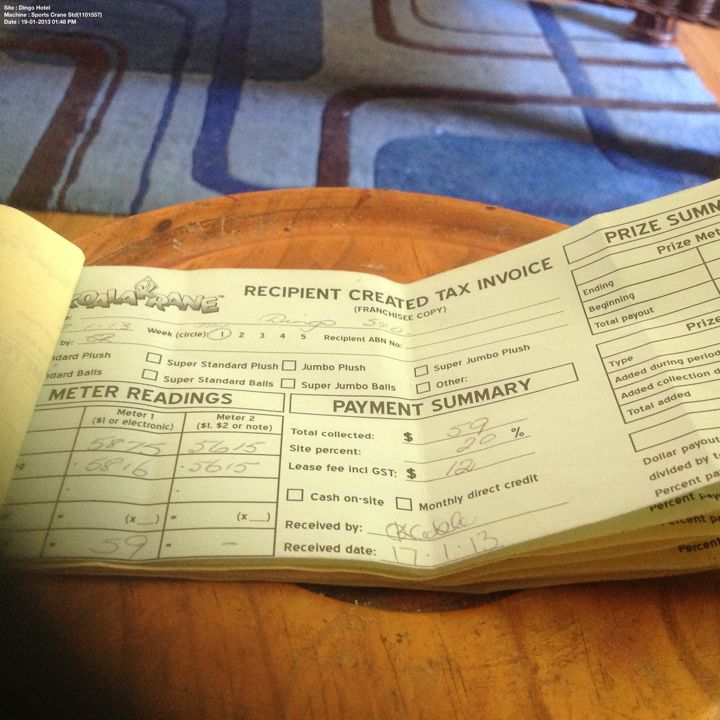 Site : Dingo Hotel
Machine : Sports Crane Std(1101557)
Date : 19-01-2013 01:48 PM
KOALA KRANE™
RECIPIENT CREATED TAX INVOICE
(FRANCHISEE COPY)
1.13 Week (circle): 1 2 3 4 5 Recipient ABN No:
Dingo
by:
dard Plush Super Standard Plush Jumbo Plush Super Jumbo Plush
dard Balls Super Standard Balls Super Jumbo Balls Other:
METER READINGS
Meter 1 Meter 2
($1 or electronic) ($1, $2 or note)
5875 5615
- 5816 - 5615
= (x__) = (x__)
= 59 = –
PAYMENT SUMMARY
Total collected: $ 59
Site percent: 20 %
Lease fee incl GST: $ 12
Cash on-site Monthly direct credit
Received by:
Received date: 17.1.13
PRIZE SUMM
Prize Met
Ending
Beginning
Total payout
Prize
Type
Added during period
Added collection d
Total added
Dollar payou
divided by t
Percent pa
Percent pay
Percent